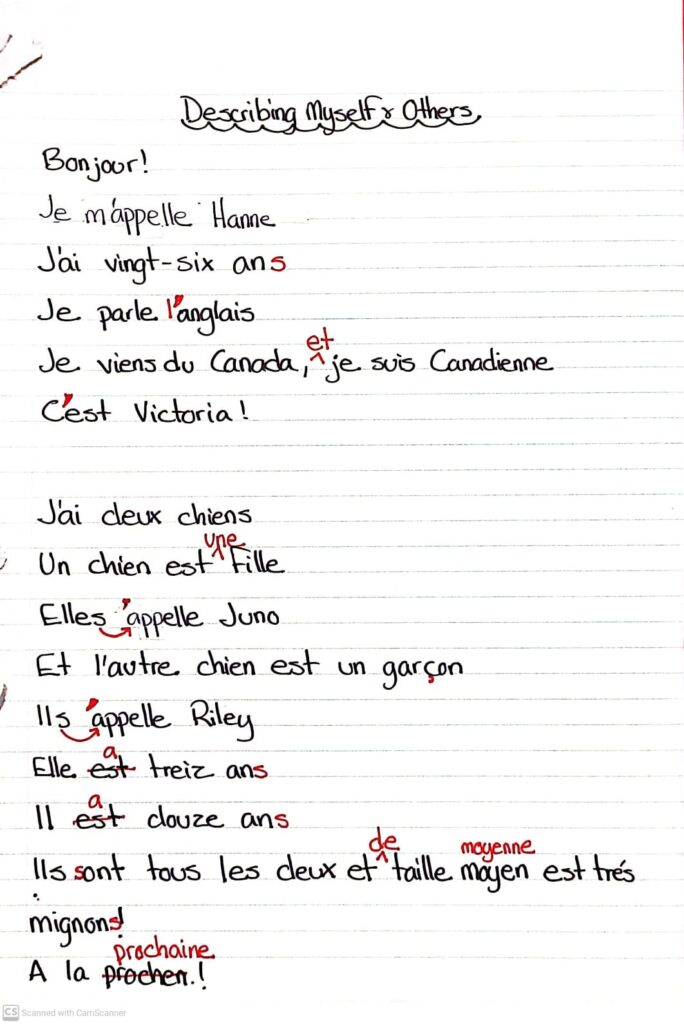 Describing Myself & Others
Bonjour!
Je m'appelle Hanne
J'ai vingt-six ans
Je parle l'anglais
et
Je viens du Canada, je suis Canadienne
C'est Victoria!
J'ai deux chiens
une
Un chien est fille
Elles 'appelle Juno
Et l'autre chien est un garçon
Ils 'appelle Riley
a
Elle est treiz ans
a
Il est douze ans
de moyenne
Ils sont tous les deux et taille moyen est trés
mignons!
prochaine
A la prochen.!
CS Scanned with CamScanner